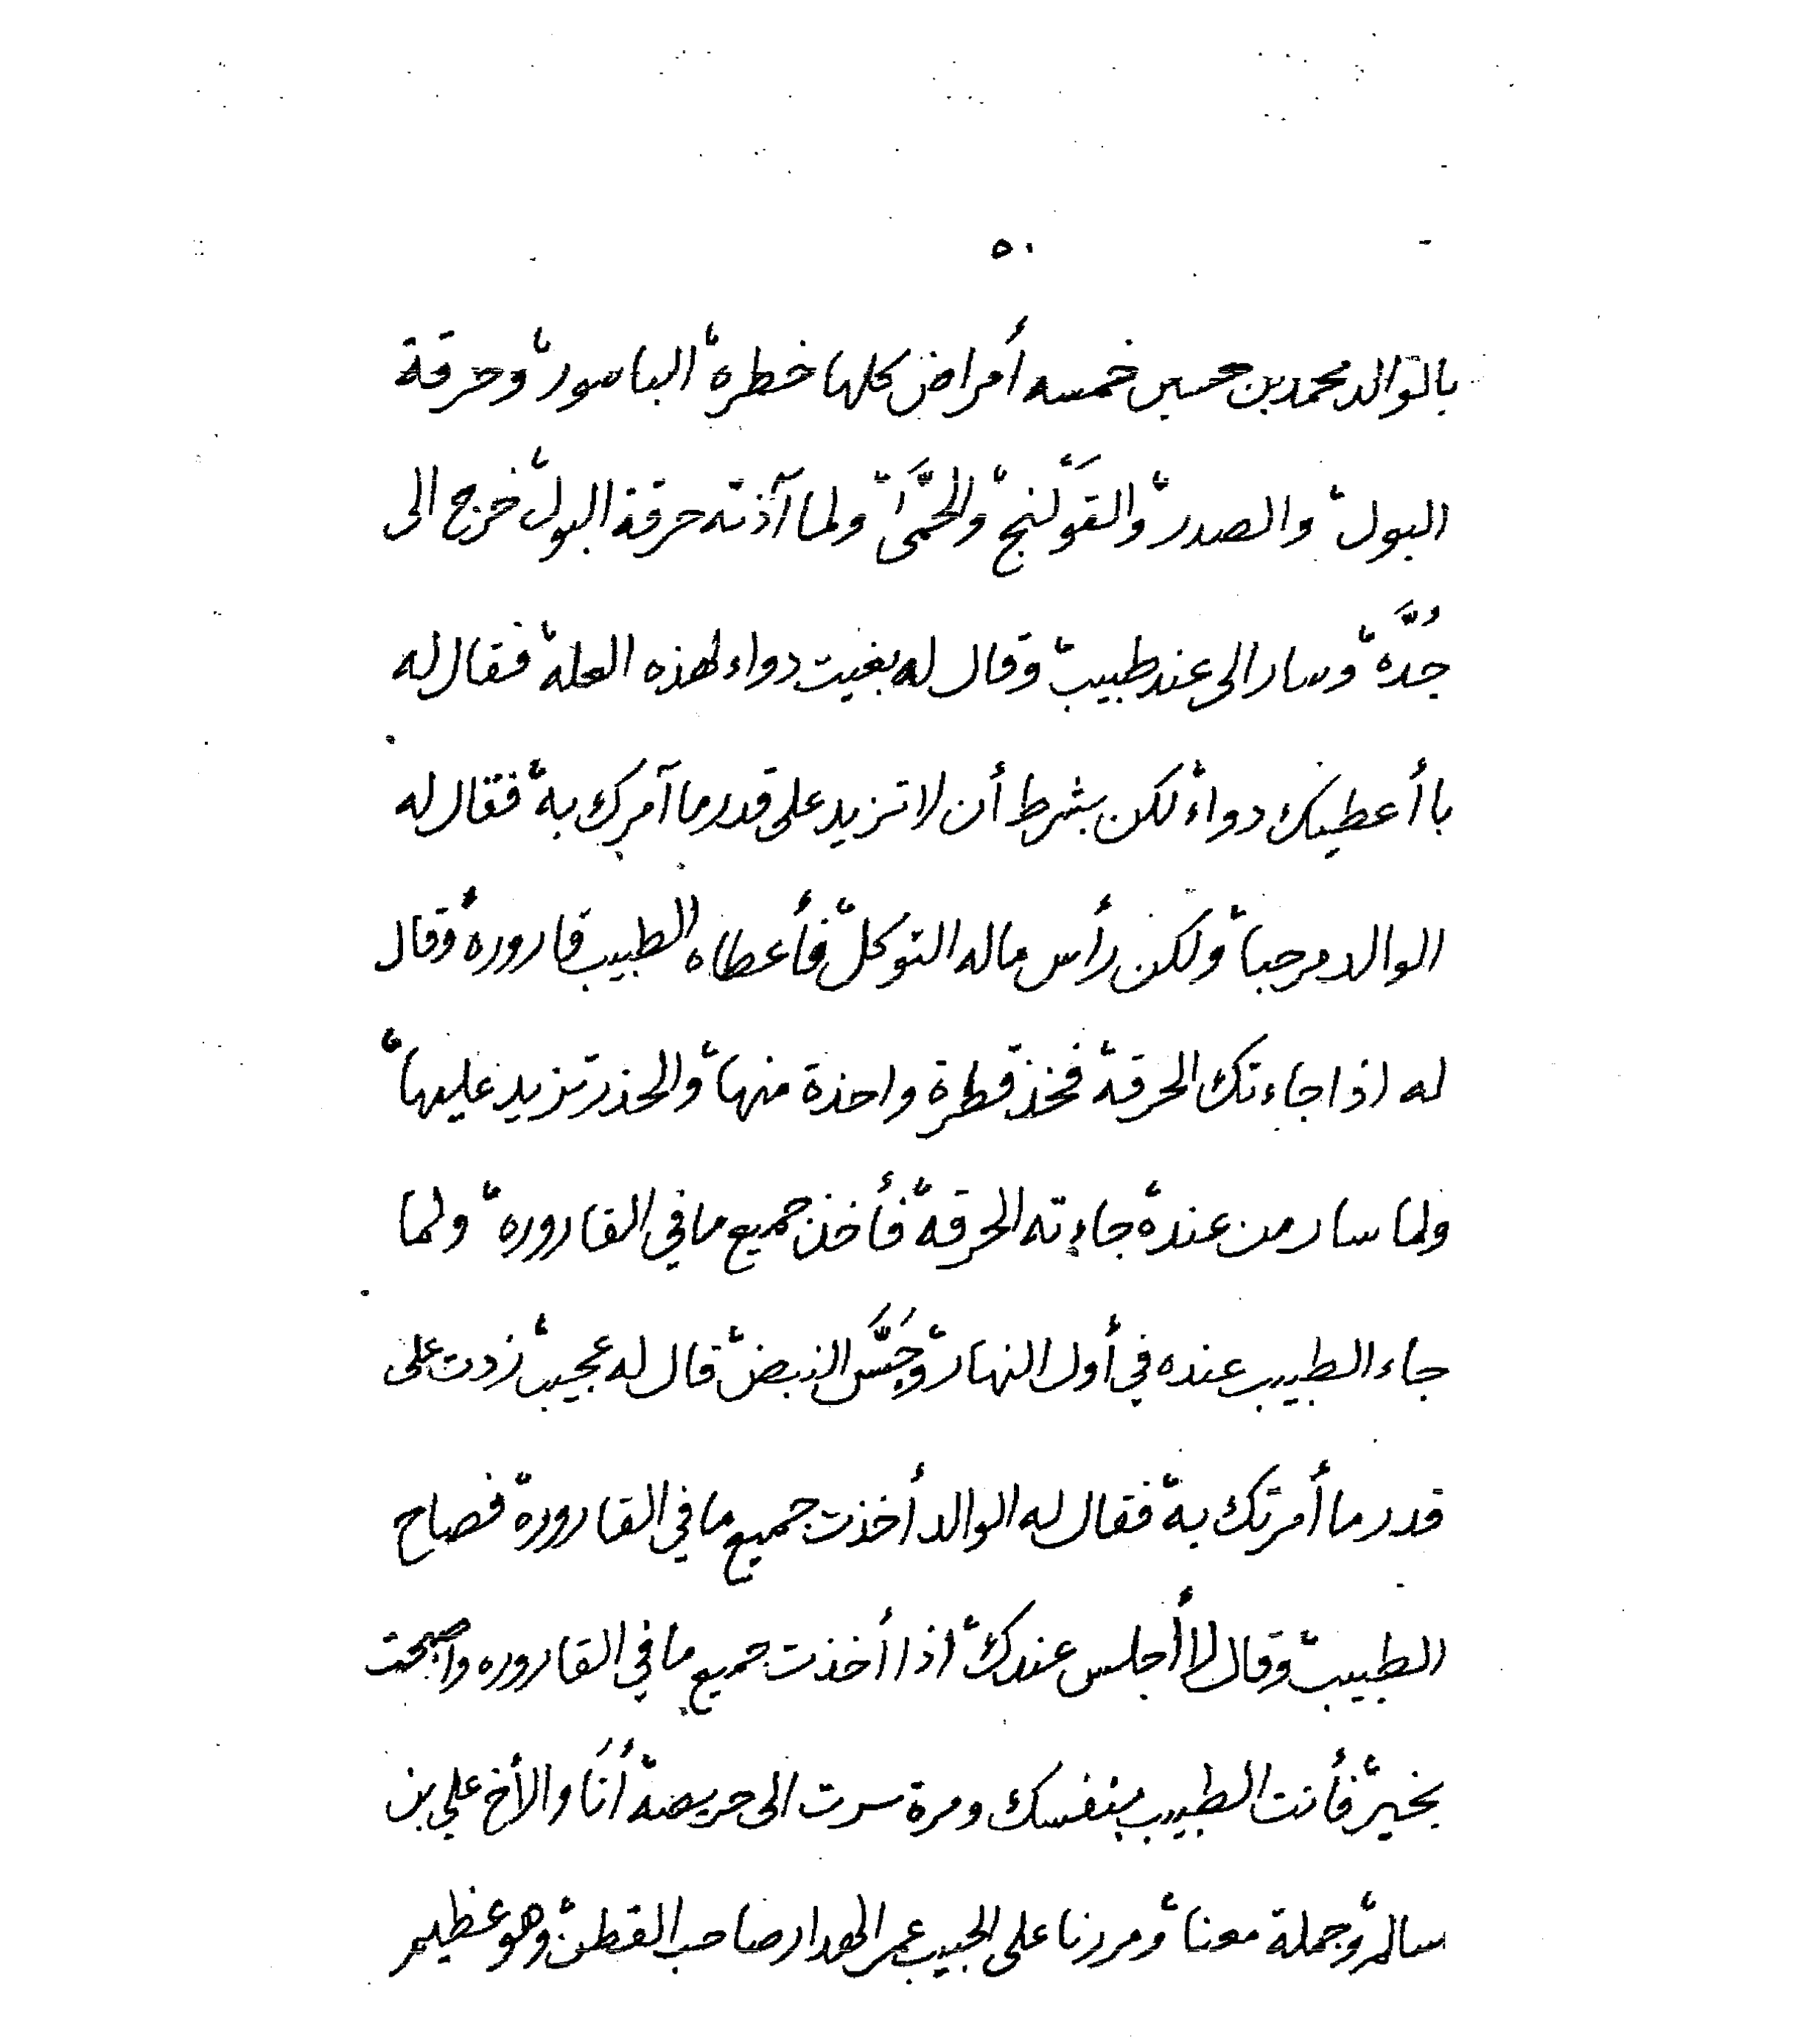 ٥٠
بالوالد محمد بن حسين خمسه أمراض كلها خطره، الباسور، وحرقة
البول، والصدر، والقَوْلنج، والحُمَّىٰ، ولما آذته حرقة البول، خرج الى
جُدَّه، وسار الى عند طبيب، وقال له بغيت دواء لهذه العله، فقال له
با أعطيك دواء، لكن بشرط أن لا تزيد على قدر ما آمرك به، فقال له
الوالد مرحبا، ولكن رأس ماله التوكل، فأعطاه الطبيب قاروره، وقال
له اذا جاءتك الحرقة، فخذ قطرة واحدة منها، والحذر تزيد عليها،
ولما سار من عنده، جاءته الحرقة، فأخذ جميع ما في القاروره، ولما
جاء الطبيب عنده في أول النهار، وجَسَّ النبض، قال له عجيب، زدت على
قدر ما أمرتك به، فقال له الوالد أخذت جميع ما في القاروره، فصاح
الطبيب، وقال لا أجلس عندك، اذا أخذت جميع ما في القاروره وأصبحت
بخير، فأنت الطبيب بنفسك ومرة سرت الى حريضة، أنَا والأخ علي بن
سالم، وجملة معنا، ومررنا على الحبيب عمر الهدار صاحب القطن، وهو عظيم